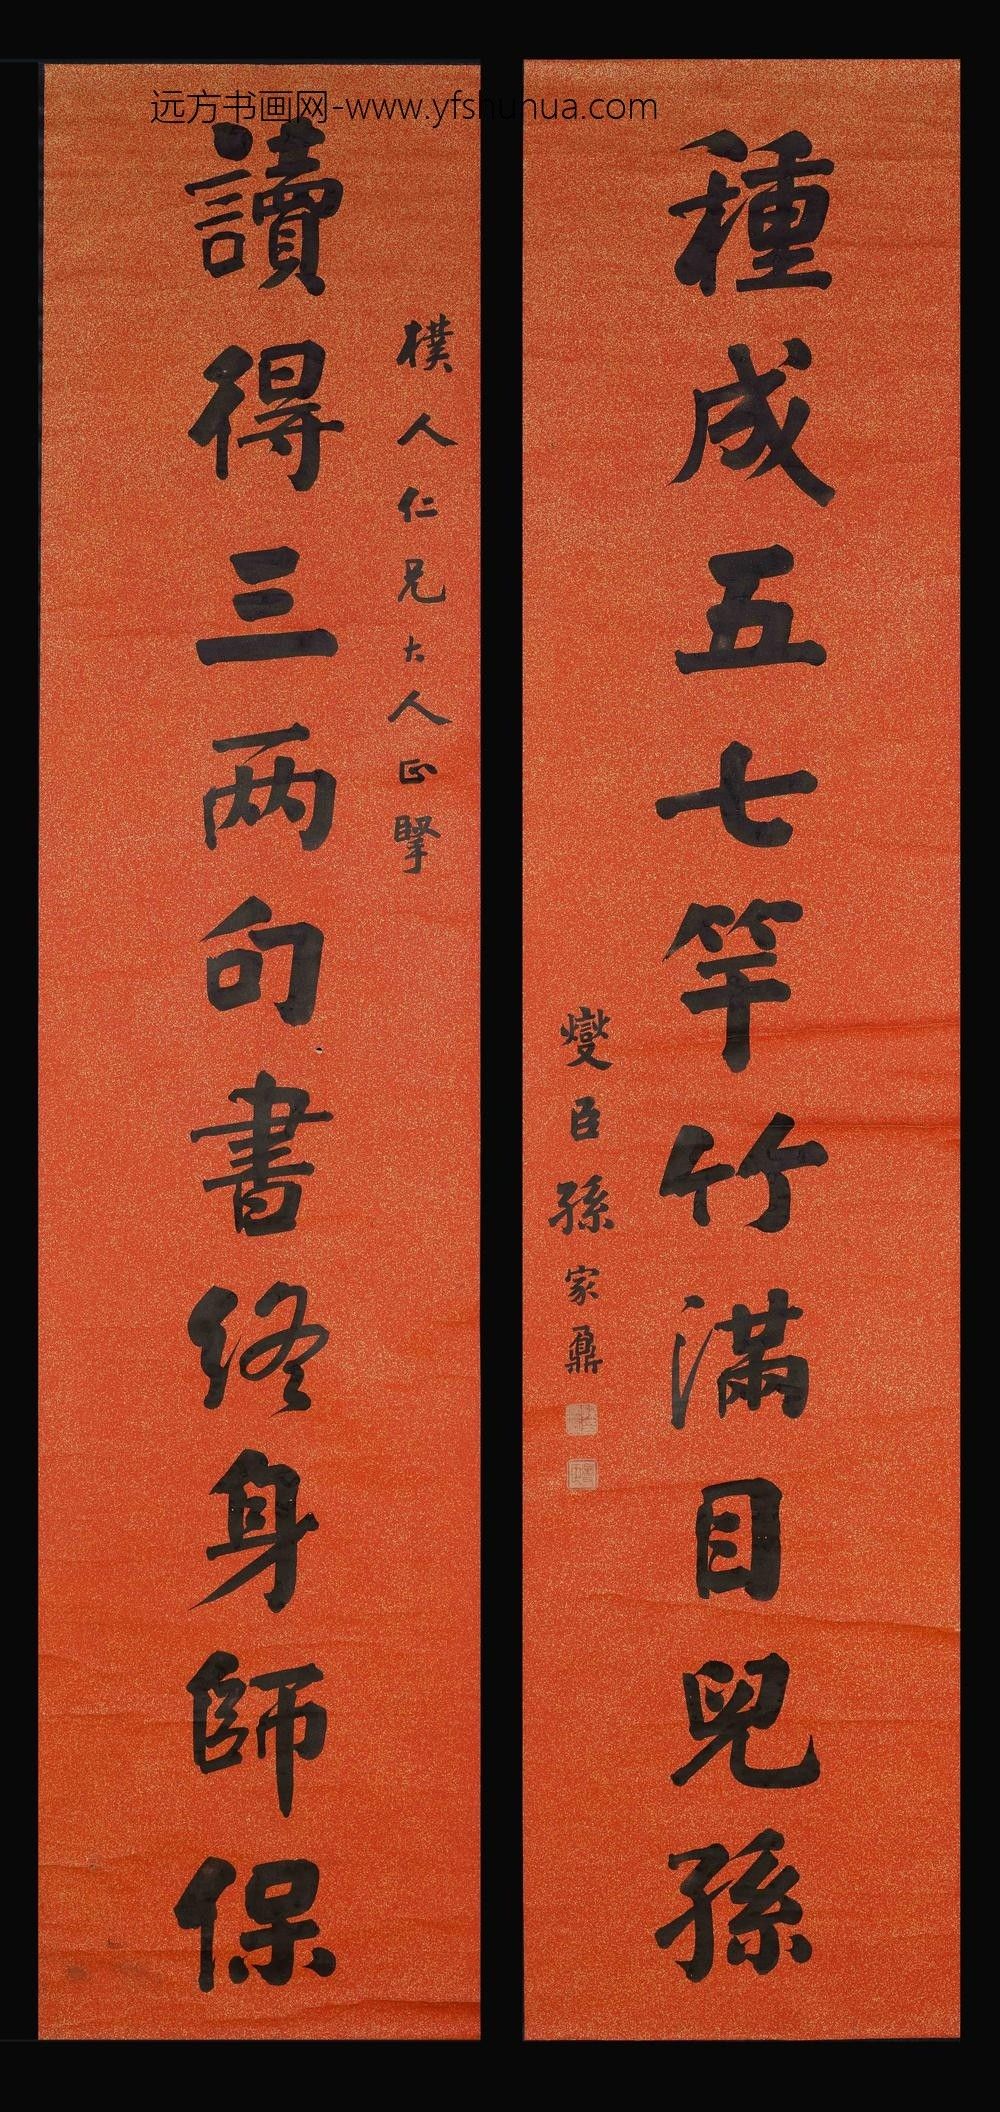 远方书画网-www.yfshuhua.com
樸人仁兄大人正掔
讀得三两句書終身師保
種成五七竿竹滿目兒孫
燮臣孫家鼐